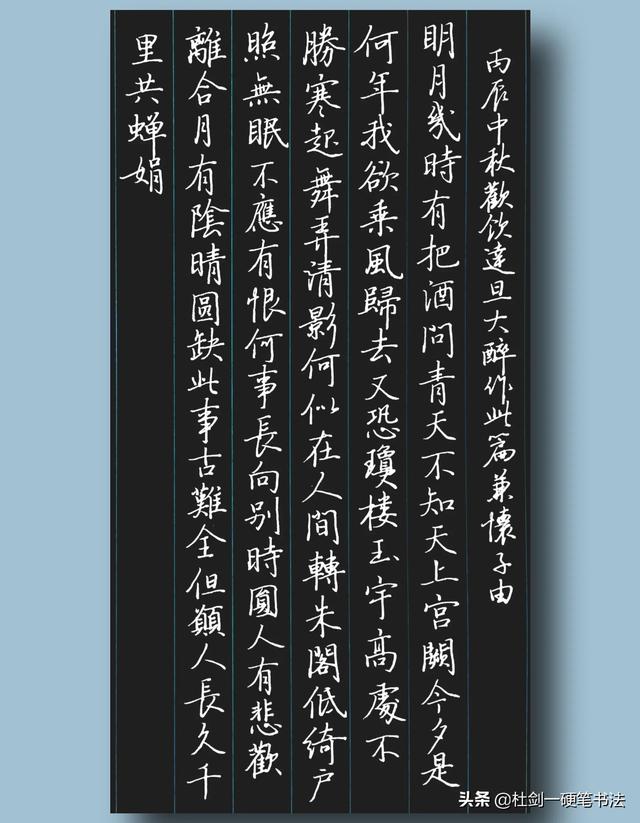 丙辰中秋歡飲達旦大醉作此篇兼懷子由
明月幾時有把酒問青天不知天上宮闕今夕是
何年我欲乘風歸去又恐瓊楼玉宇高處不
勝寒起舞弄清影何似在人間轉朱閣低綺户
照無眠不應有恨何事長向别時圓人有悲歡
離合月有陰晴圓缺此事古難全但願人長久千
里共蝉娟
头条@杜剑一硬笔书法